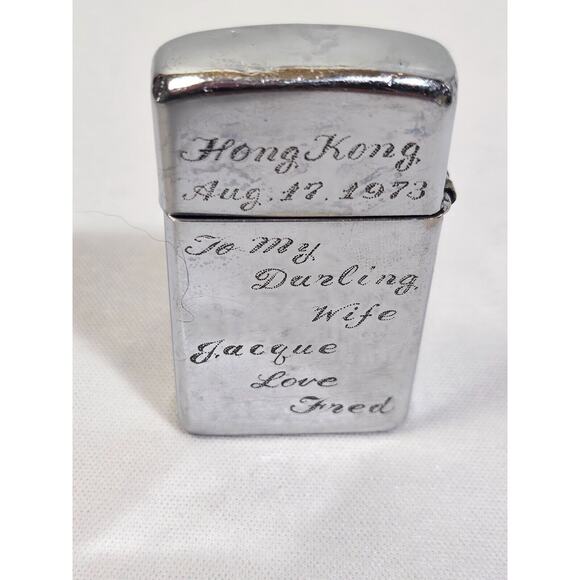 Hong Kong
Aug. 17. 1973
To My
Darling
Wife
Jacque
Love
Fred